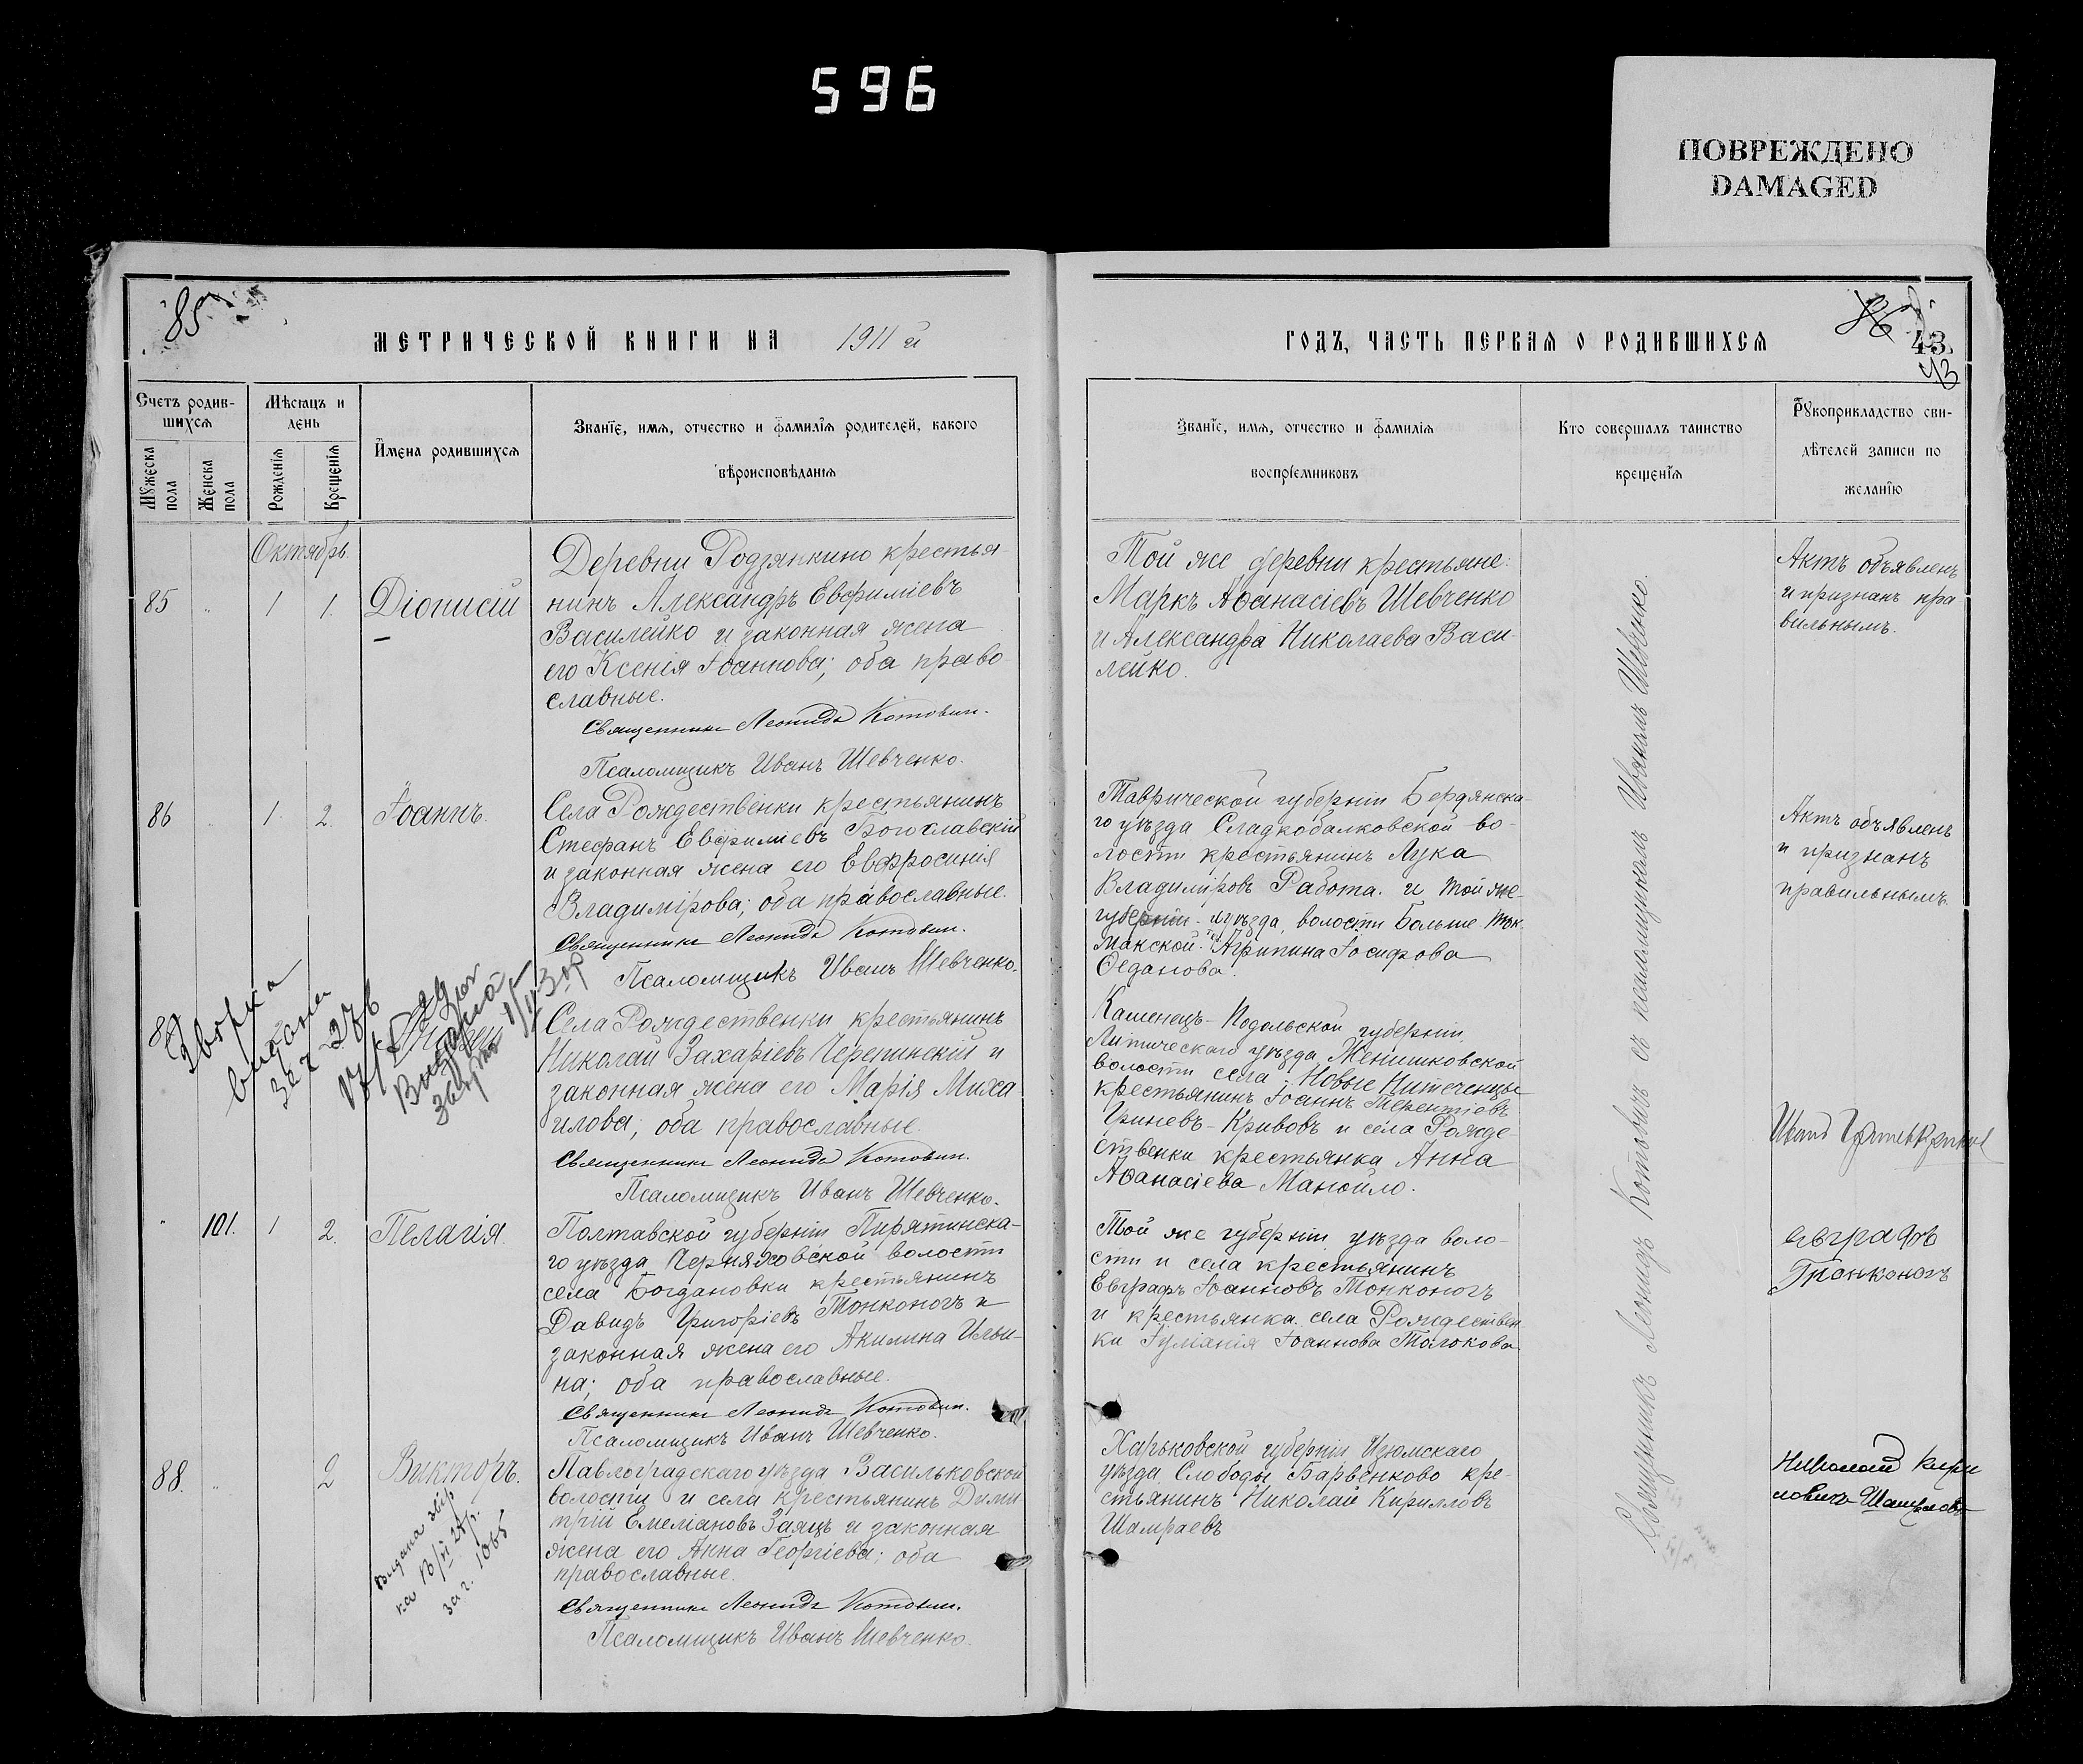 596
ПОВРЕЖДЕНО
DAMAGED
85
МЕТРИЧЕСКОЙ КНИГИ НА 1911 й
Счетъ родив-
шихся
Мужеска пола
Женска пола
Мѣсяцъ и
день
Рожденія
Крещенія
Имена родившихся
Званіе, имя, отчество и фамилія родителей, какого
вѣроисповѣданія
Октябрь.
85 " 1 1. Діонисій
Деревни Родзянкино крестья-
нинъ Александръ Евфиміевъ
Василейко и законная жена
его Ксенія Іоаннова; оба право-
славные.
Священникъ Леонидъ Котович.
Псаломщикъ Иванъ Шевченко.
86 " 1. 2. Іоаннъ.
Села Рождественки крестьянинъ
Стефанъ Евфиміевъ Богославскій
и законная жена его Евфросинія
Владимірова; оба православные.
Священникъ Леонидъ Котович.
Псаломщикъ Иванъ Шевченко.
видана
Села Рождественки крестьянинъ
Николай Захаріевъ Черепинскій и
законная жена его Марія Миха-
илова; оба православные.
Священникъ Леонидъ Котович.
Псаломщикъ Иванъ Шевченко.
" 101. 1 2. Пелагія.
Полтавской губерніи Пирятинска-
го уѣзда Черняховской волости
села Богдановки крестьянинъ
Давидъ Григоріевъ Тонконогъ и
законная жена его Акилина Ильи-
на; оба православные.
Священникъ Леонидъ Котович.
Псаломщикъ Иванъ Шевченко.
88. " 2 Викторъ.
Видана збір
за ч. 1065
Павлоградскаго уѣзда Васильковской
волости и села крестьянинъ Дими-
трій Емеліановъ Заяцъ и законная
жена его Анна Георгіева; оба
православные.
Священникъ Леонидъ Котович.
Псаломщикъ Иванъ Шевченко.
ГОДЪ, ЧАСТЬ ПЕРВАЯ О РОДИВШИХСЯ
86
43.
43
Званіе, имя, отчество и фамилія
воспріемниковъ
Кто совершалъ таинство
крещенія
Рукоприкладство сви-
дѣтелей записи по
желанію
Той же деревни крестьяне:
Маркъ Аѳанасіевъ Шевченко
и Александра Николаева Васи-
лейко.
Актъ объявленъ
и признанъ пра
вильнымъ.
Таврической губерніи Бердянска-
го уѣзда Сладкобалковской во-
лости крестьянинъ Лука
Владиміровъ Работа. и той же-
губерніи уѣзда, волости Больше-Ток-
макской Агрипина Іосифова
Ѳеданова.
Актъ объявленъ
и признанъ
правильнымъ.
Каменецъ-Подольской губерніи,
уѣзда
волости села Новые
крестьянинъ Іоаннъ Терентіевъ
Гриневъ-Кривовъ и села Рожде-
ственки крестьянка Анна
Аѳанасіева Манойло.
Иванъ
Той же губерніи, уѣзда воло-
сти и села крестьянинъ
Евграфъ Іоанновъ Тонконогъ
и крестьянка села Рождествен
ки Іуліанія Іоаннова Толокова
Евграфъ
Тонконогъ
Харьковской губерніи Изюмскаго
уѣзда Слободы Барвенково кре-
стьянинъ Николай Кирилловъ
Шамраевъ
Николай Кири
ловичъ Шамраевъ
Священникъ Леонидъ Котовичъ съ псаломщикомъ Иваномъ Шевченко.